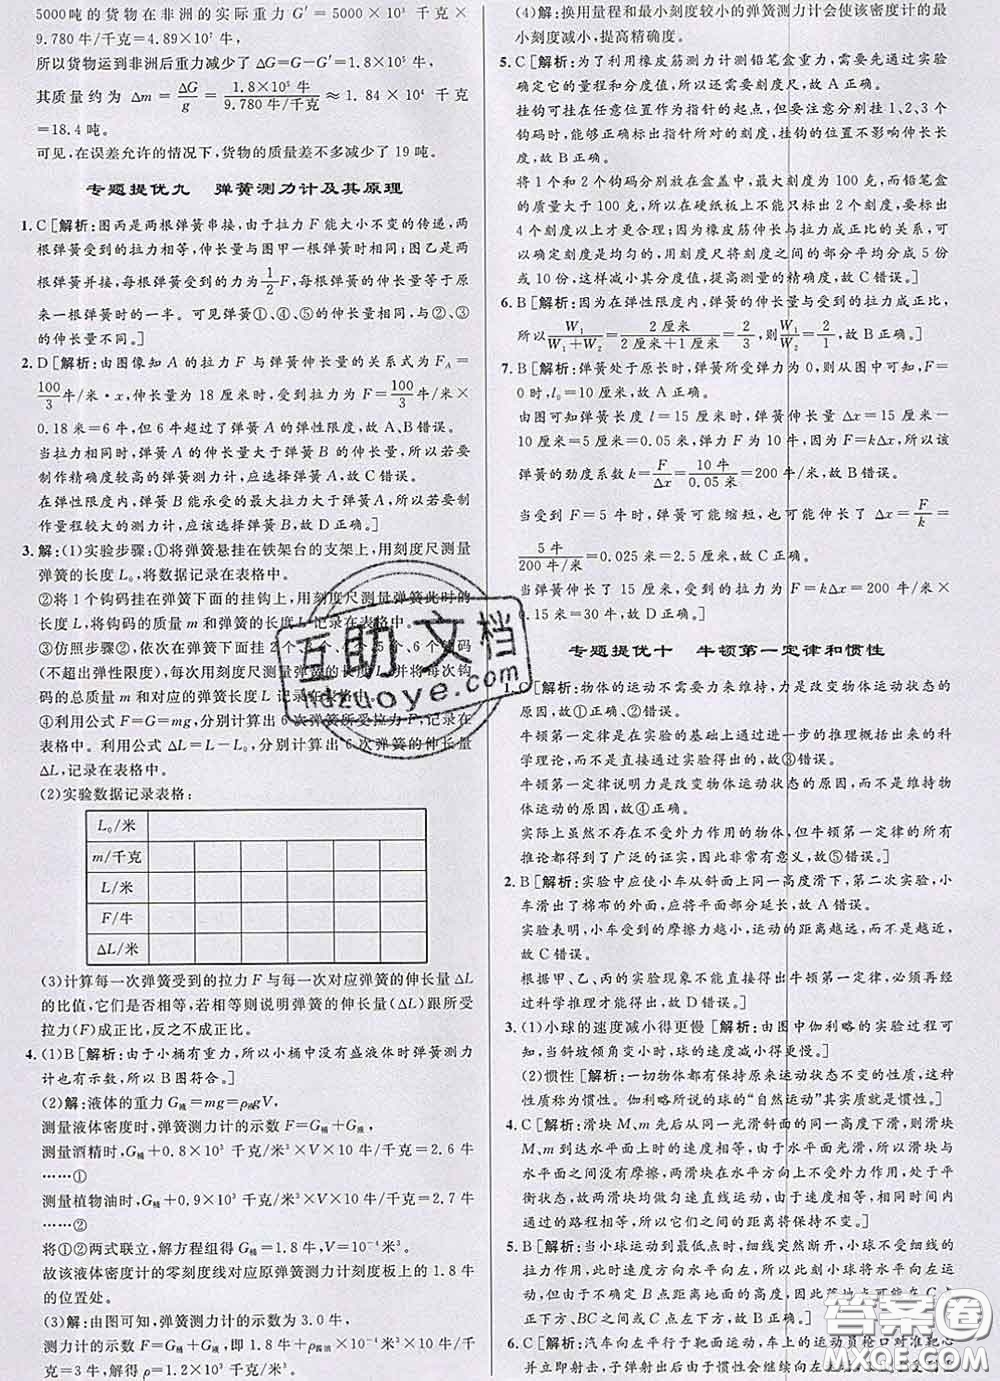 5000吨的货物在非洲的实际重力 G′=5000×10³ 千克×
9.780 牛/千克=4.89×10⁷ 牛,
所以货物运到非洲后重力减少了 ΔG=G−G′=1.8×10⁵ 牛,
其质量约为 Δm=ΔG/g=1.8×10⁵牛/9.780 牛/千克≈1.84×10⁴ 千克
=18.4 吨。
可见,在误差允许的情况下,货物的质量差不多减少了 19 吨。
专题提优九 弹簧测力计及其原理
1. C [解析:图丙是两根弹簧串接,由于拉力 F 能大小不变的传递,两
根弹簧受到的拉力相等,伸长量与图甲一根弹簧时相同;图乙是两
根弹簧并接,每根弹簧受到的力为1/2F,每根弹簧伸长量等于原
来一根弹簧时的一半。可见弹簧①、④、⑤的伸长量相同,与②、③
的伸长量不同。]
2. D [解析:由图像知 A 的拉力 F 与弹簧伸长量的关系式为 F_A=
100/3牛/米·x,伸长量为 18 厘米时,受到拉力 F=100/3牛/米×
0.18 米=6 牛,但 6 牛超过了弹簧 A 的弹性限度,故 A、B错误。
当拉力相同时,弹簧 A 的伸长量大于弹簧 B 的伸长量,所以若要
制作精确度较高的弹簧测力计,应选择弹簧 A,故 C 错误。
在弹性限度内,弹簧 B 能承受的最大拉力大于弹簧 A,所以若要制
作量程较大的测力计,应该选择弹簧 B,故 D 正确。]
3. 解:(1)实验步骤:①将弹簧悬挂在铁架台的支架上,用刻度尺测量
弹簧的长度 L₀,将数据记录在表格中。
②将 1 个钩码挂在弹簧下面的挂钩上,用刻度尺测量弹簧此时的
长度 L,将钩码的质量 m 和弹簧的长度 L 记录在表格中。
③仿照步骤②,在弹簧下面挂上 2 个、3 个、4 个、5 个、6 个钩码
(不超出弹性限度),
码的总质量 m 和对应的弹簧长度 L 记录在表格中。
④利用公式 F=G=mg,分别计算出 6 次弹簧所受拉力 F,记录在
表格中。利用公式 ΔL=L−L₀,分别计算出 6 次弹簧的伸长量
ΔL,记录在表格中。
(2)实验数据记录表格:
L₀/米
m/千克
L/米
F/牛
ΔL/米
(3)计算每一次弹簧受到的拉力 F 与每一次对应弹簧的伸长量 ΔL
的比值,它们是否相等,若相等则说明弹簧的伸长量(ΔL)跟所受
拉力(F)成正比,反之不成正比。
4. (1)B [解析:由于小桶有重力,所以小桶中没有盛液体时弹簧测力
计也有示数,所以 B 图符合。]
(2)解:液体的重力 G液=mg=ρ液gV,
测量液体密度时,弹簧测力计的示数 F=G桶+G液,
测量酒精时,G桶+0.8×10³ 千克/米³×V×10 牛/千克=2.6 牛
……①
测量植物油时,G桶+0.9×10³ 千克/米³×V×10 牛/千克=2.7 牛
……②
将①②两式联立,解方程组得 G桶=1.8 牛,V=10⁻⁴米³。
故该液体密度计的零刻度线对应原弹簧测力计刻度板上的 1.8 牛
的位置处。
(3)解:由图可知,弹簧测力计的示数为 3.0 牛,
测力计的示数 F=G桶+G液,即 1.8 牛+ρ酱油×10⁻⁴米³×10 牛/千克
=3 牛,解得 ρ=1.2×10³
(4)解:换用量程和最小刻度较小的弹簧测力计会使该密度计的最
小刻度减小,提高精确度。
5. C [解析:为了利用橡皮筋测力计测铅笔盒重力,需要先通过实验
确定它的量程和分度值,所以还需要刻度尺,故 A 正确。
挂钩可挂在任意位置作为指针的起点,但要注意分别挂 1、2、3 个
钩码时,能够正确标出指针所对的刻度,挂钩的位置不影响伸长长
度,故 B 正确。
将 1 个和 2 个钩码分别放在盒盖中,最大刻度为 100 克,而铅笔盒
的质量大于 100 克,所以在硬纸板上不能只标出 2 个刻度,要标出
4 个刻度以上才更合理;因为橡皮筋伸长与拉力成正比的关系,可
以确定刻度是均匀的,用刻度尺将刻度之间的部分平均分成 5 份
或 10 份,这样减小其分度值,提高测量的精确度,故 C 错误。]
6. B [解析:因为在弹性限度内,弹簧的伸长量与受到的拉力成正比,
所以W₁/(W₁+W₂)=2厘米/(2厘米+1厘米)=2/3,则W₁/W₂=2/1,故 B 正确。]
7. B [解析:弹簧处于原长时,弹簧所受弹力为 0,则从图中可知,F=
0 时,l₀=10 厘米,故 A 正确。
由图可知弹簧长度 l=15 厘米时,弹簧伸长量 Δx=15 厘米−
10 厘米=5 厘米=0.05 米,弹力 F=10 牛,因为 F=kΔx,所以该
弹簧的劲度系数 k=F/Δx=10 牛/0.05 米=200 牛/米,故 B 错误。
当受到 F=5 牛时,弹簧可能缩短,也可能伸长了 Δx=F/k=
5 牛/200 牛/米=0.025 米=2.5 厘米,故 C 正确。
当弹簧伸长了 15 厘米,受到的拉力为 F=kΔx=200 牛/米×
0.15 米=30 牛,故 D 正确。]
专题提优十 牛顿第一定律和惯性
1. [解析:物体的运动不需要力来维持,力是改变物体运动状态的
原因,故①正确,②错误。
牛顿第一定律是在实验的基础上通过进一步的推理概括出来的科
学理论,而不是实验定律,故③错误。
牛顿第一定律说明力是改变物体运动状态的原因,而不是维持物
体运动的原因,所以④正确。
实际上虽然不存在不受外力作用的物体,但牛顿第一定律的所有
推论都得到了广泛的证实,因此是非常有意义的,故⑤错误。]
2. B [解析:实验中应使小车从斜面上同一高度滑下,第二次实验,小
车滑出了棉布的外面,应将平面部分延长,故 A 错误。
实验表明,小车受到的摩擦力越小,运动的距离越远,而不是越大,
故 C 错误。
根据甲、乙、丙的实验现象不能直接得出牛顿第一定律,必须再经
过科学推理才能得出,故 D 错误。]
3. (1)小球的速度减小得更慢 [解析:由图中伽利略的实验过程可
知,当斜坡倾角变小时,球的速度减小得更慢。]
(2)惯性 [解析:一切物体都有保持原来运动状态不变的性质,这种
性质称为惯性。伽利略所说的球的“自然运动”其实质就是惯性。]
4. C [解析:滑块 M、m 先后从同一光滑斜面的同一高度下滑,则滑块
M、m 到达水平面上时的速度相等,由于水平面光滑,所以滑块与
水平面之间没有摩擦,两滑块在水平方向上不受外力作用,处于平
衡状态,故两滑块均做匀速直线运动,由于速度相等,相同时间内
通过的路程相等,所以它们之间的距离将保持不变。]
5. B [解析:当小球运动到最低点时,细线突然断开,小球不受细线的
拉力作用,此时速度方向水平向左,所以此刻小球将水平向左运
动,但由于不确定 B 点距底面的距离,因此小球可能落在 C 点上
方、BC 之间或 C 点左下方,故 B 正确。]
6. C [解析:汽车向左平行于靶面运动,车上的运动员枪口对准靶心
并立即射击,子弹射出后由于惯性会继续向左
互助文档
hdzuoye.com
答案圈
MXQE.COM